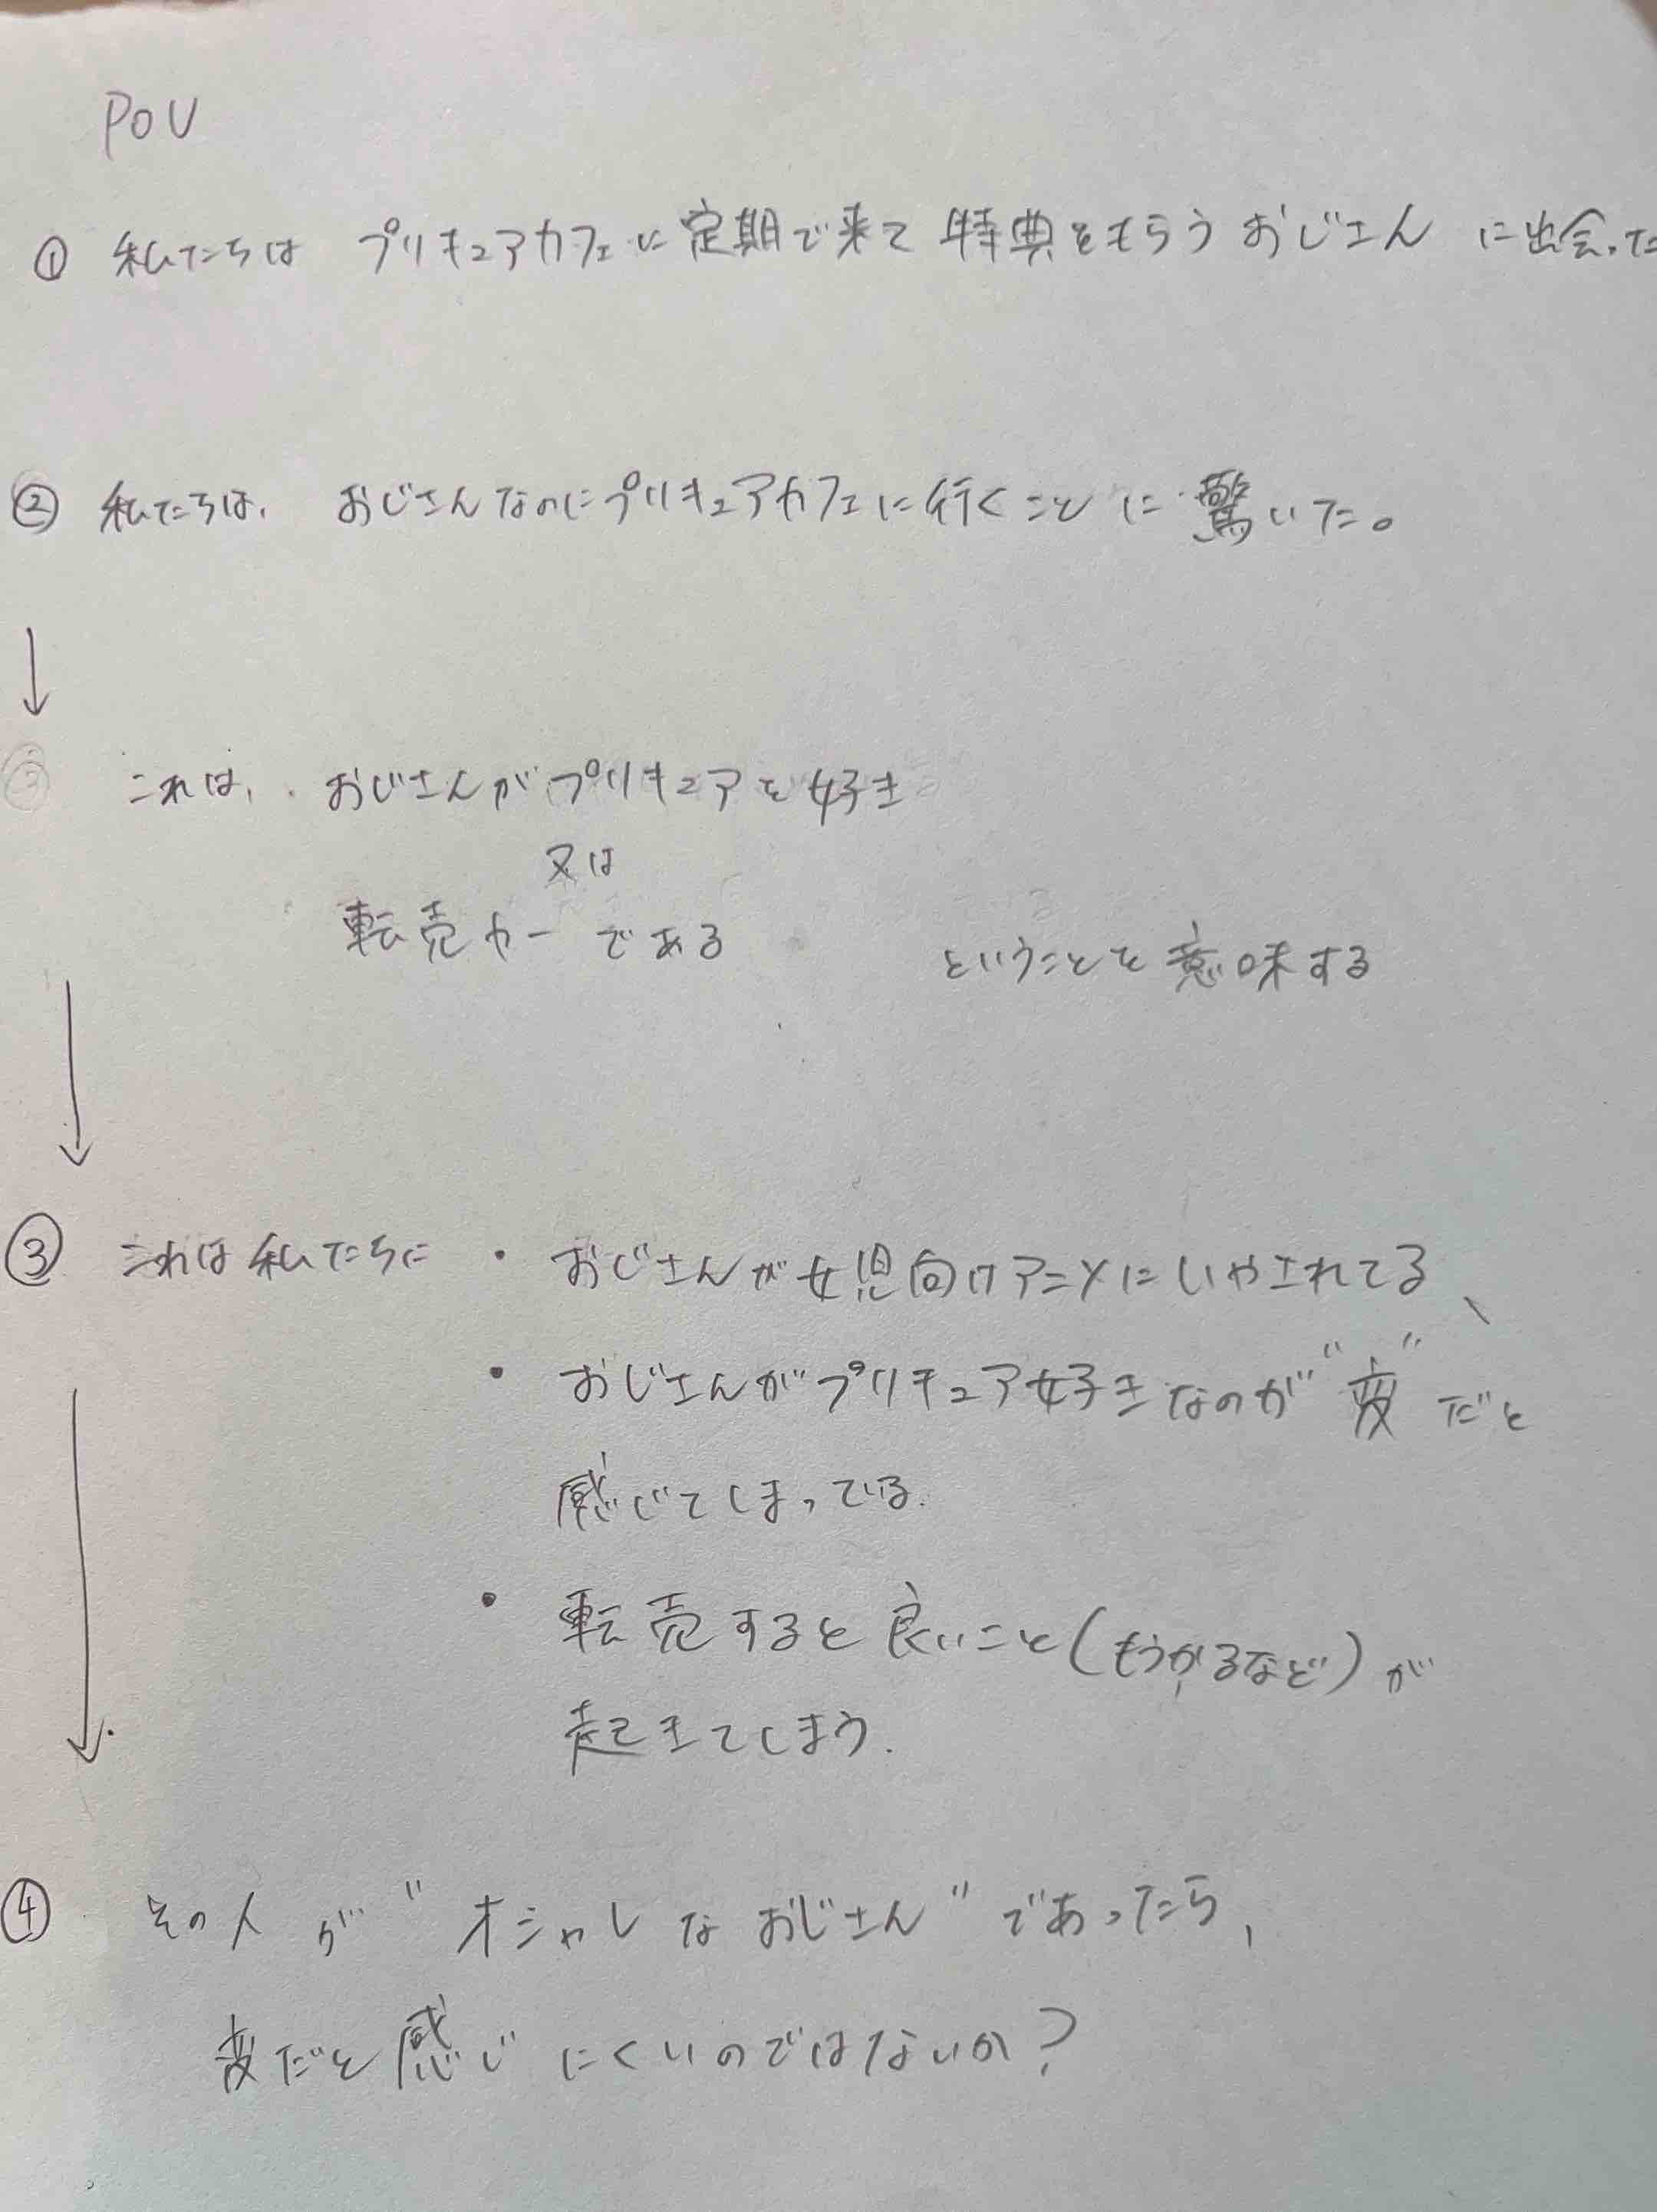 POV
① 私たちは プリキュアカフェに定期で来て 特典をもらう おじさん に出会った
② 私たちは、 おじさんなのにプリキュアカフェに行くこと に 驚いた。
↓
③ これは、 おじさんがプリキュアを好き
又は
転売ヤーである ということを意味する
↓
③ これは私たちに ・ おじさんが女児向けアニメにいやされてる、
・ おじさんがプリキュア好きなのが"変"だと
感じてしまっている.
・ 転売すると良いこと(もうかるなど)が
起きてしまう.
↓
④ その人が"オシャレなおじさん"であったら、
変だと感じにくいのではないか?